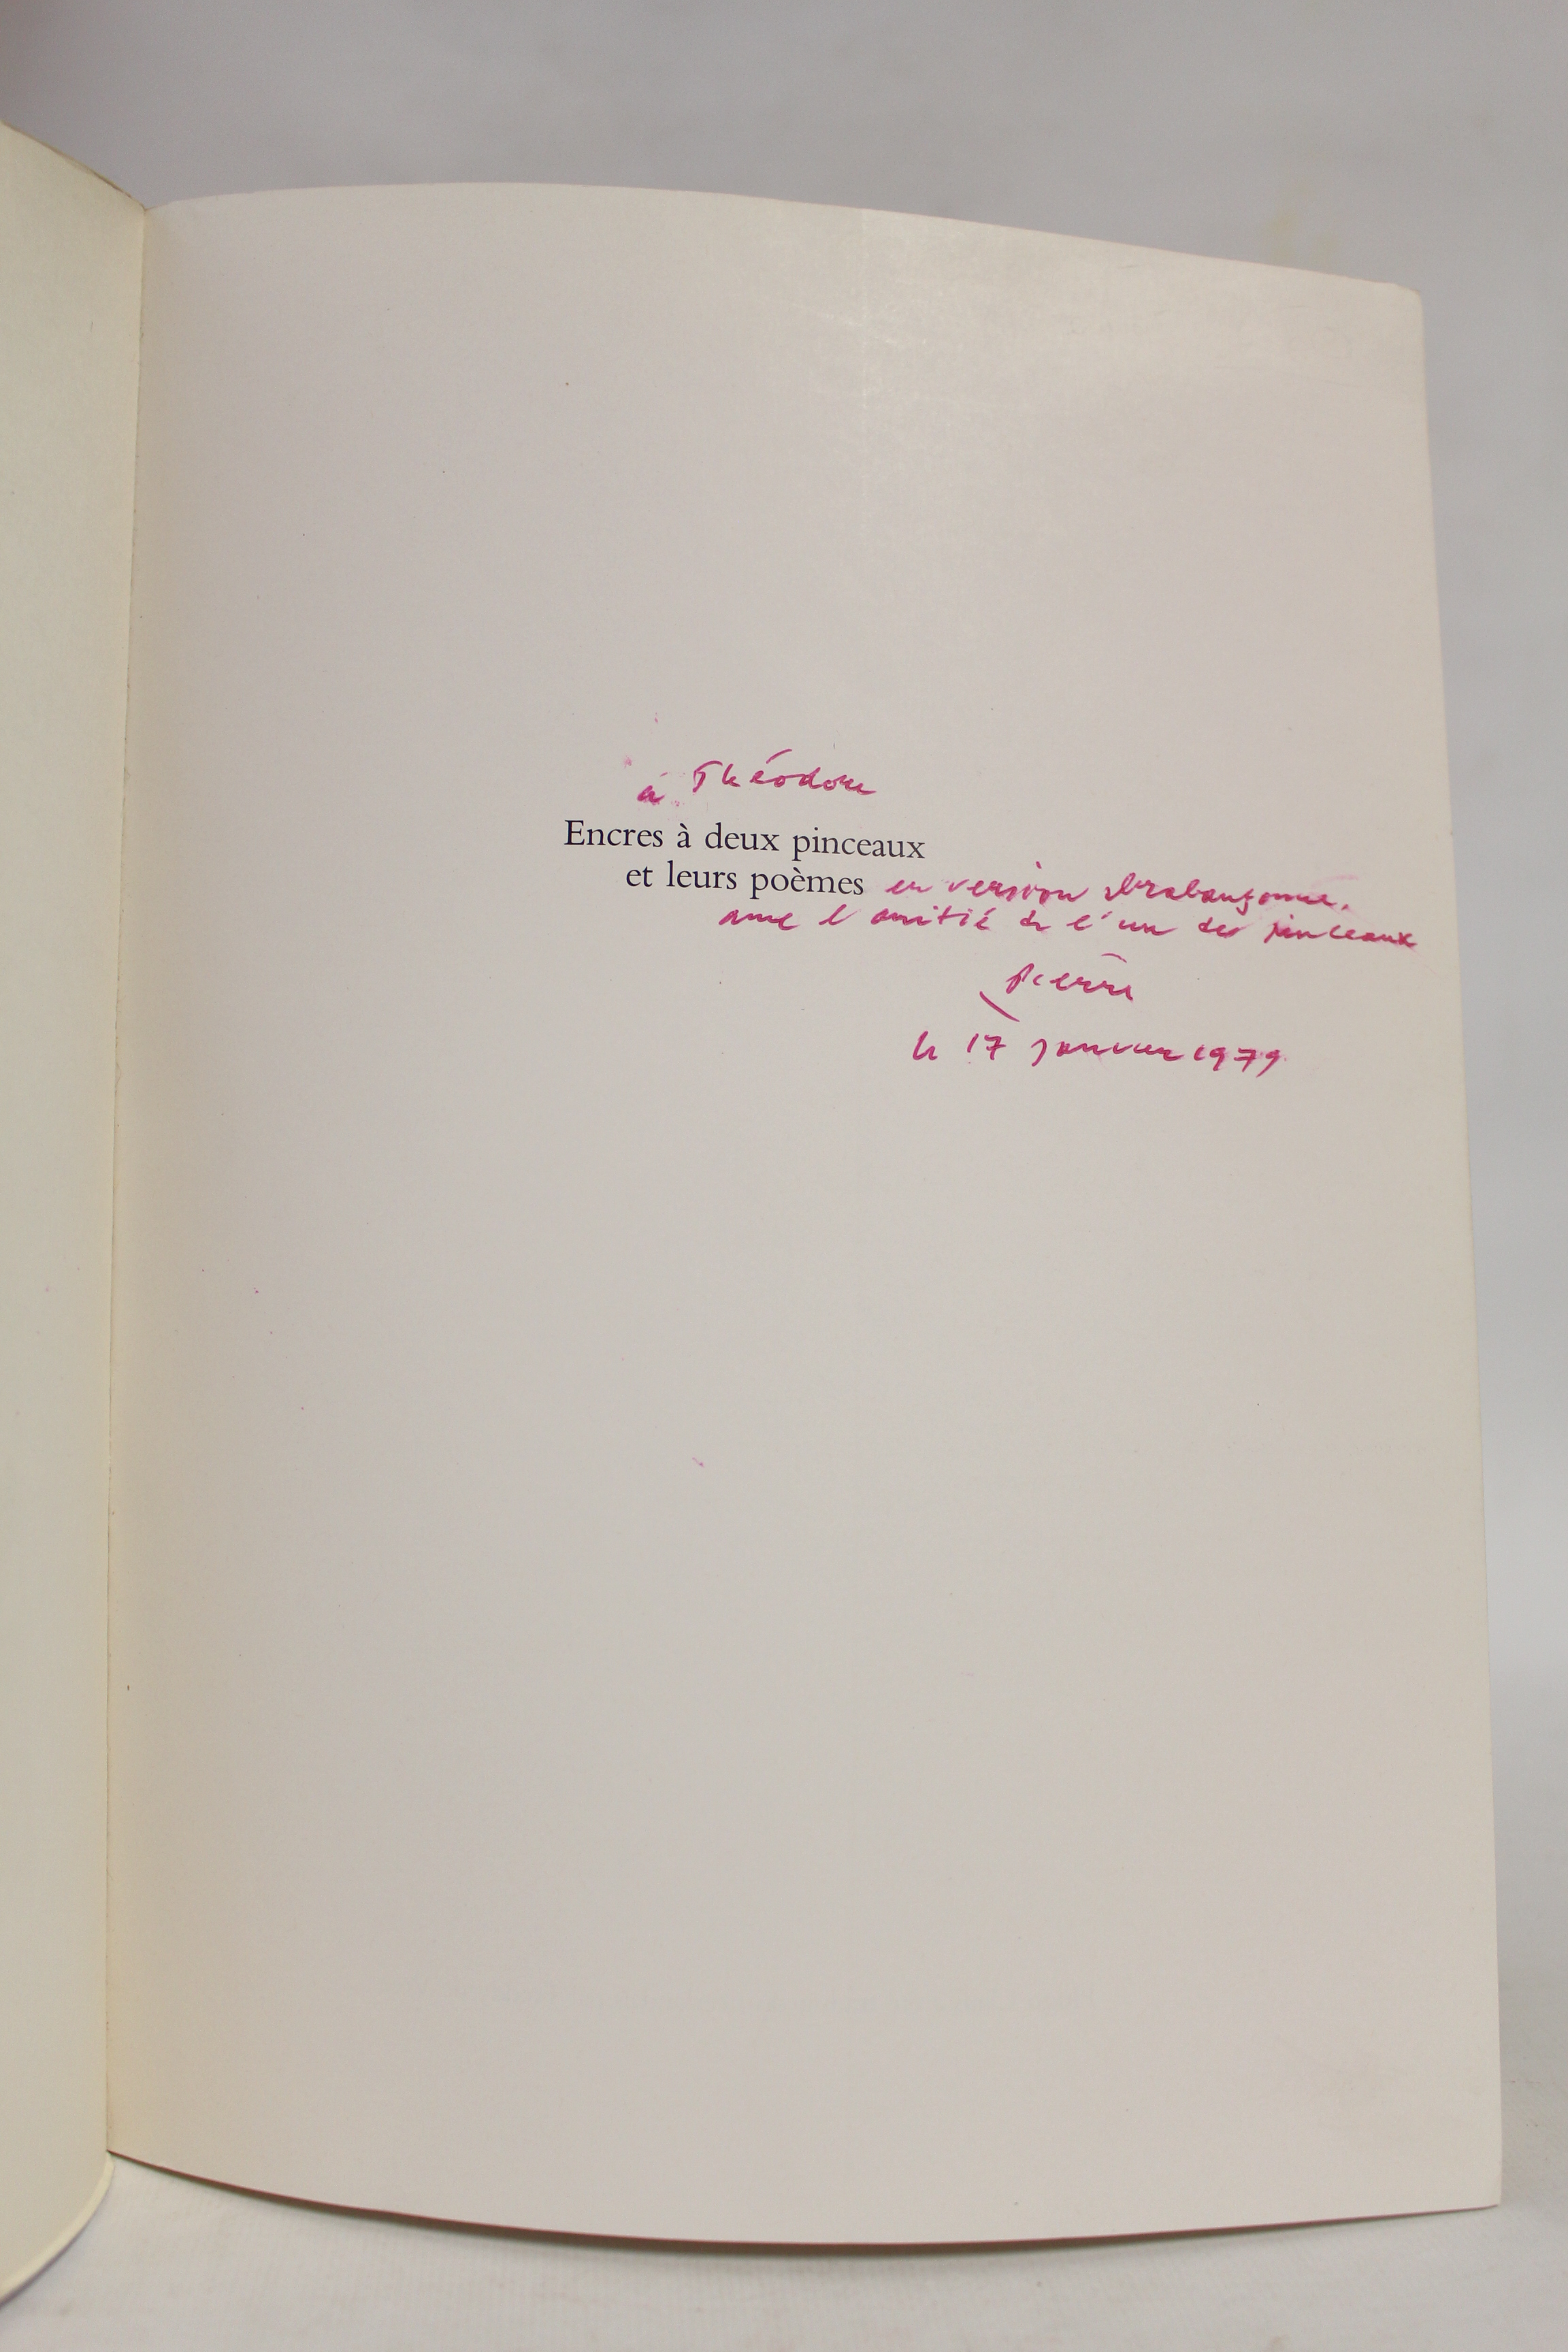 à Théodore
Encres à deux pinceaux
et leurs poèmes en version brabançonne.
avec l'amitié de l'un des pinceaux
Pierre
le 17 janvier 1979